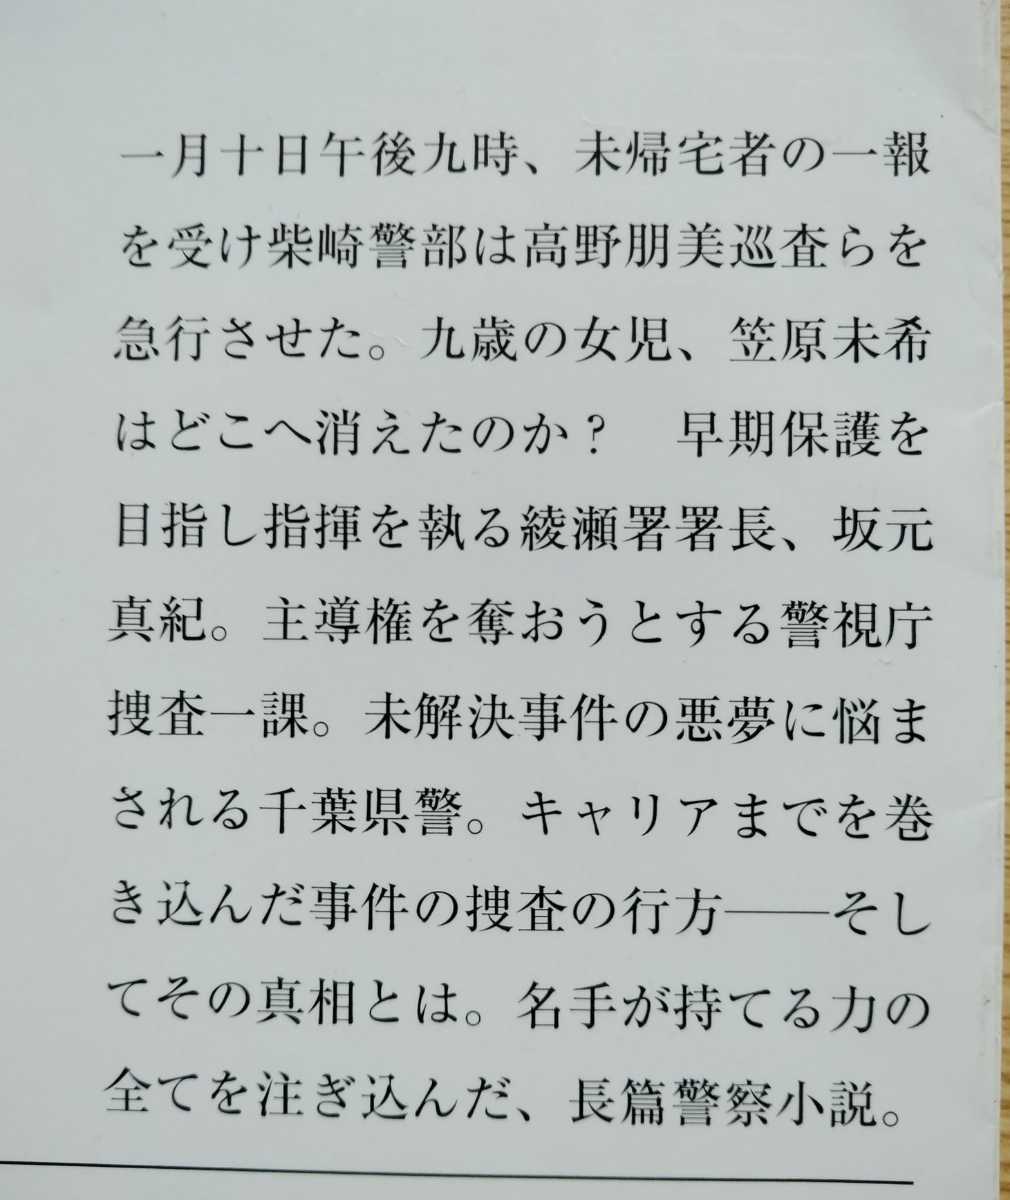 一月十日午後九時、未帰宅者の一報
を受け柴崎警部は高野朋美巡査らを
急行させた。九歳の女児、笠原未希
はどこへ消えたのか?　早期保護を
目指し指揮を執る綾瀬署署長、坂元
真紀。主導権を奪おうとする警視庁
捜査一課。未解決事件の悪夢に悩ま
される千葉県警。キャリアまでを巻
き込んだ事件の捜査の行方――そし
てその真相とは。名手が持てる力の
全てを注ぎ込んだ、長篇警察小説。